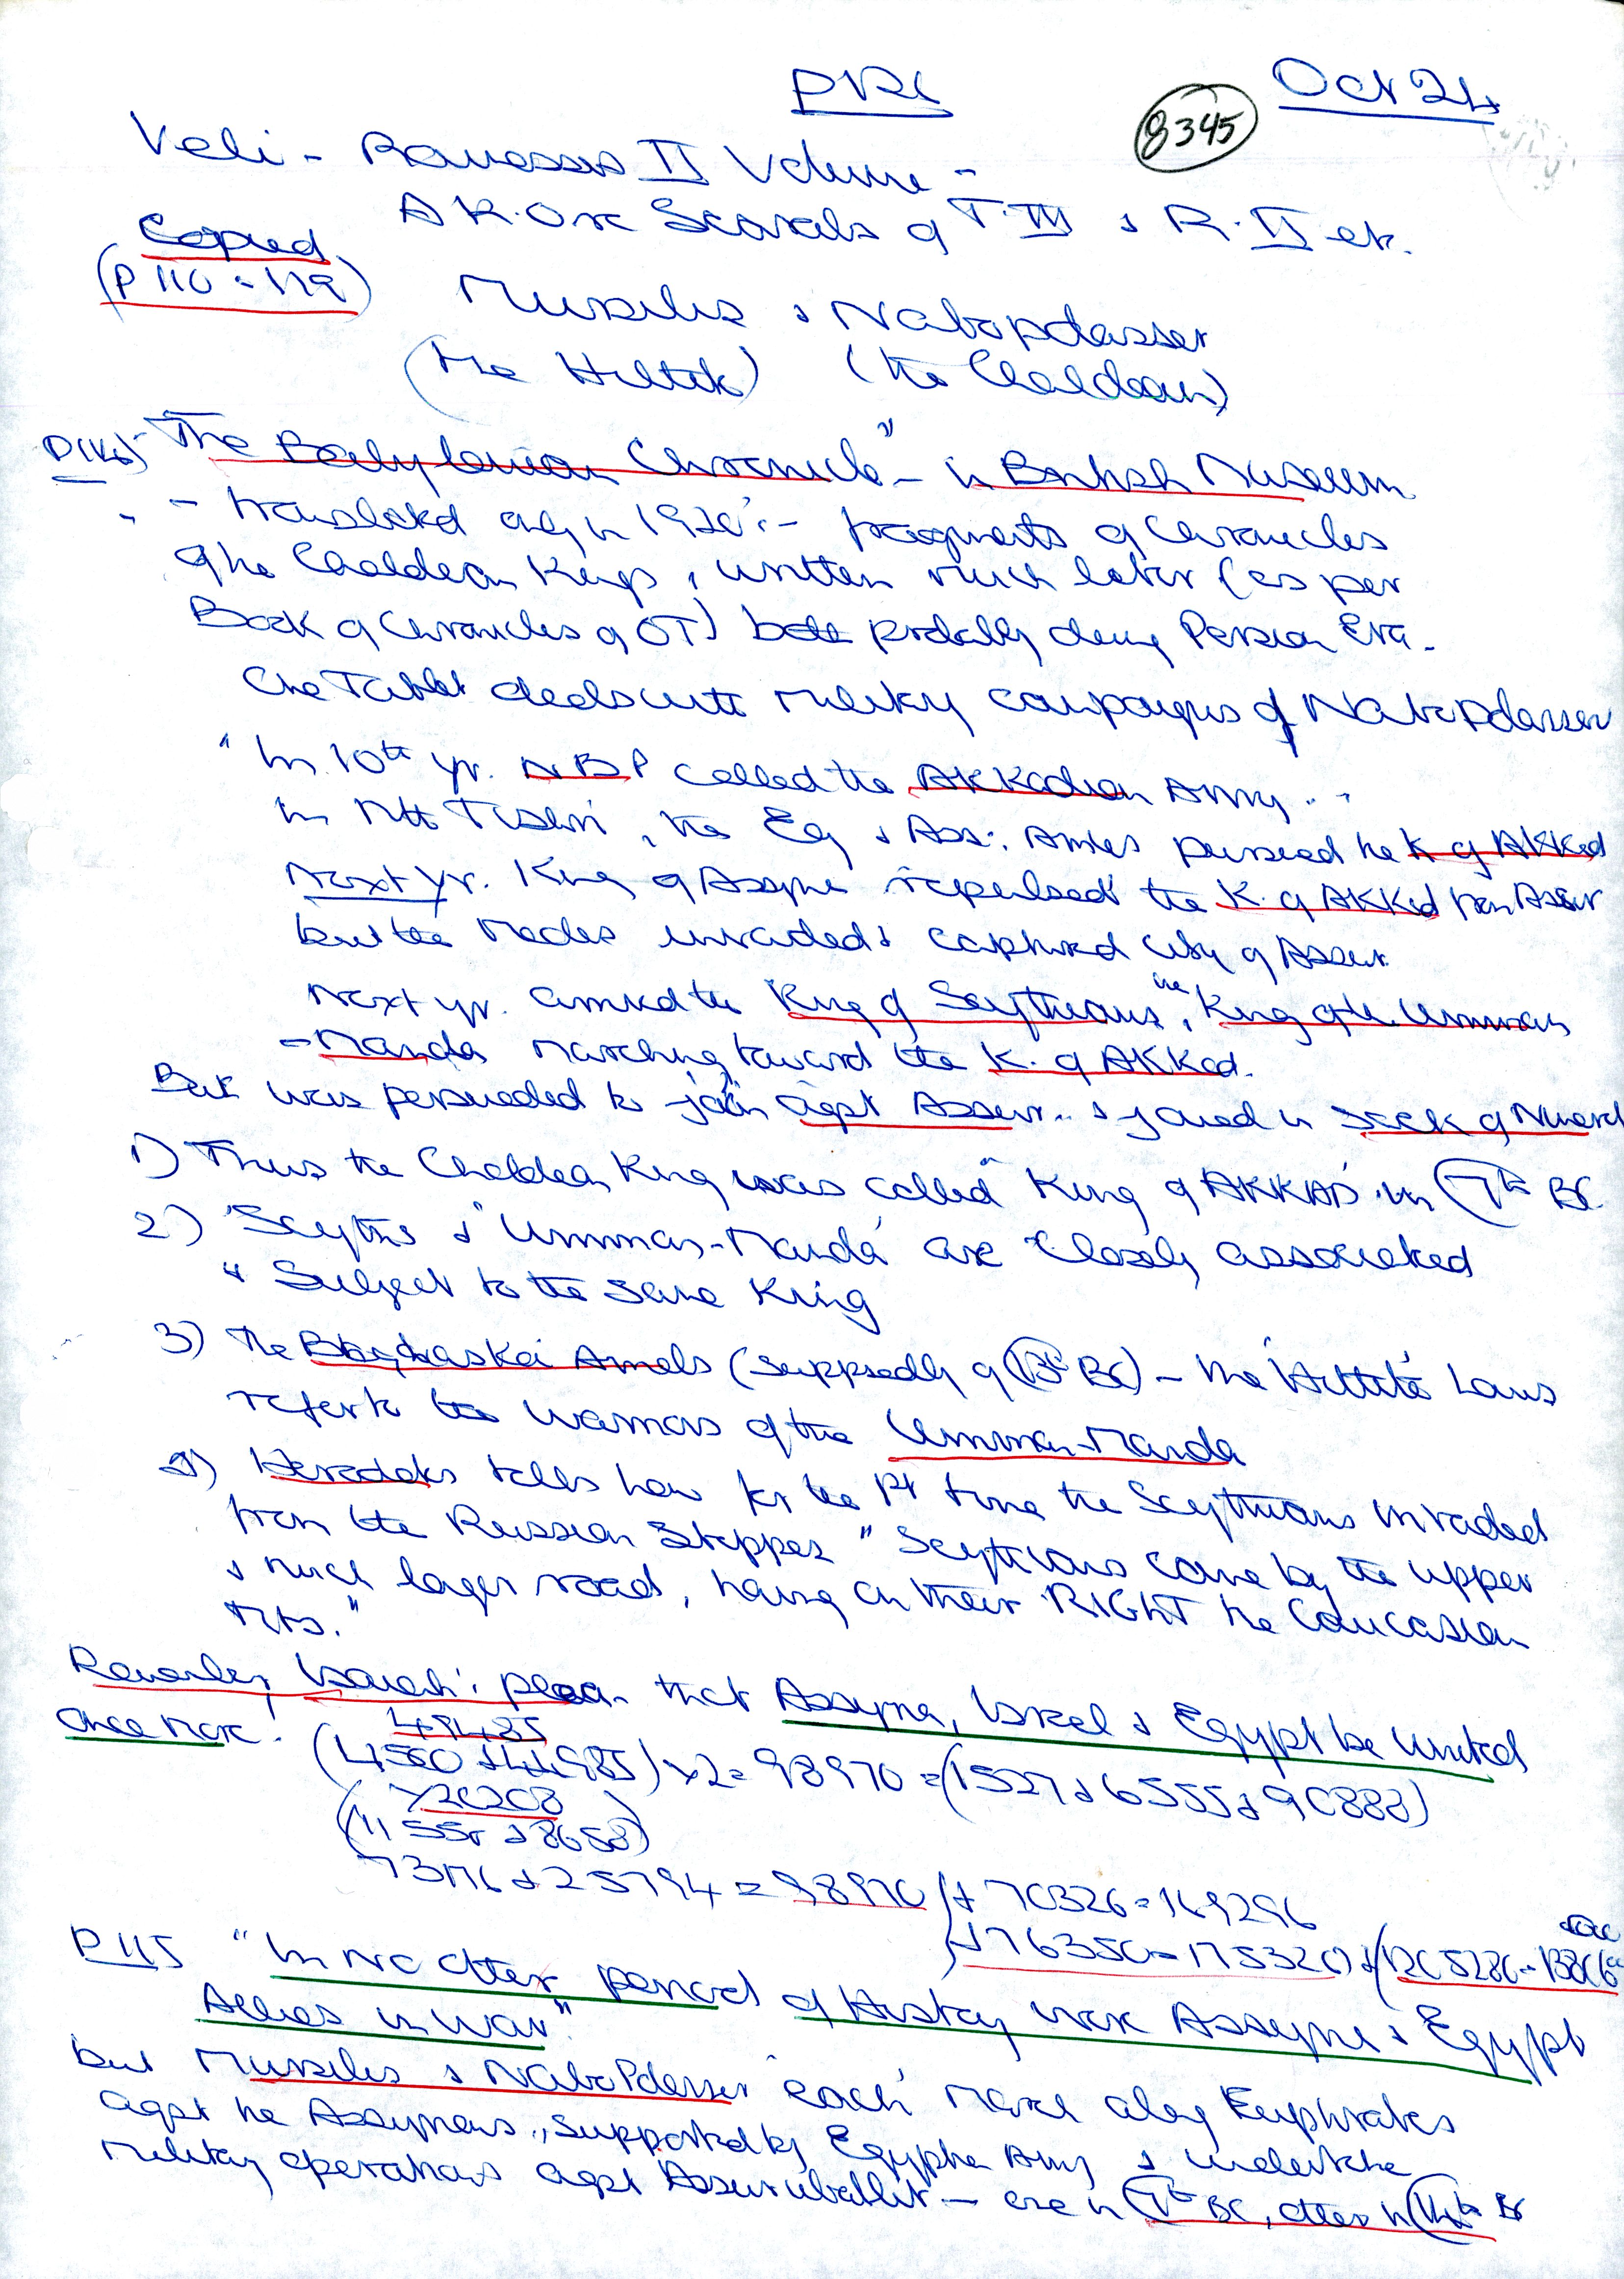 Oct 24
8345
Veli - Ramesses II Volume -
Scarabs of T.III & R.II etc.
Copied
(P 110 - 112)
Mursilis & Nabopolasser
(the Hittite) (the Chaldean)
"The Babylonian Chronicle" - in British Museum
- translated only in 1920's - fragments of Chronicles
of the Chaldean Kings, written much later (as per
Book of Chronicles of OT) both probably during Persian Era.
One Tablet deals with military campaigns of Nabopolasser
"In 10th yr. NBP called the AKKadian Army ..
In Mth Tishri, the Eg & Ass: Armies pursued the K of AKKad
Next yr. King of Assyria repulsed the K. of AKKad from Assur
but the Medes invaded & captured city of Assur.
Next yr. arrived the King of Scythians, the King of the Umman
-Manda marching toward the K. of AKKad.
But was persuaded to join agst Assur.. & joined in Sack of Nineveh
1) Thus the Chaldean King was called "King of AKKAD" in 7th BC.
2) "Scyths & "Umman-Manda" are closely associated
" Subject to the same King
3) The Boghaskoi Annals (supposedly of 13th BC) - the 'Hittite' Laws
refer to the warriors of the Umman-Manda
4) Herodotus tells how for the 1st time the Scythians invaded
from the Russian Steppes "Scythians came by the upper
& much longer road, having on their RIGHT the Caucasian
Mts."
Remember, Isaiah's plea - that Assyria, Israel & Egypt be United
once more!
49485
(4500 + 44985) x 2 = 98970 = (1527 + 6555 + 90888)
x 20208
(11550 + 8658)
73176 + 25794 = 98970 + 70326 = 169296
+ 76350 = 175320
P 115 "In no other period of History were Assyria & Egypt
Allies in War".
but Mursilis & NaboPolasser 'each' march along Euphrates
agst the Assyrians, supported by Egyptian Army & undertake
military operations agst Assuruballit - one in 7th BC, other in 14th BC